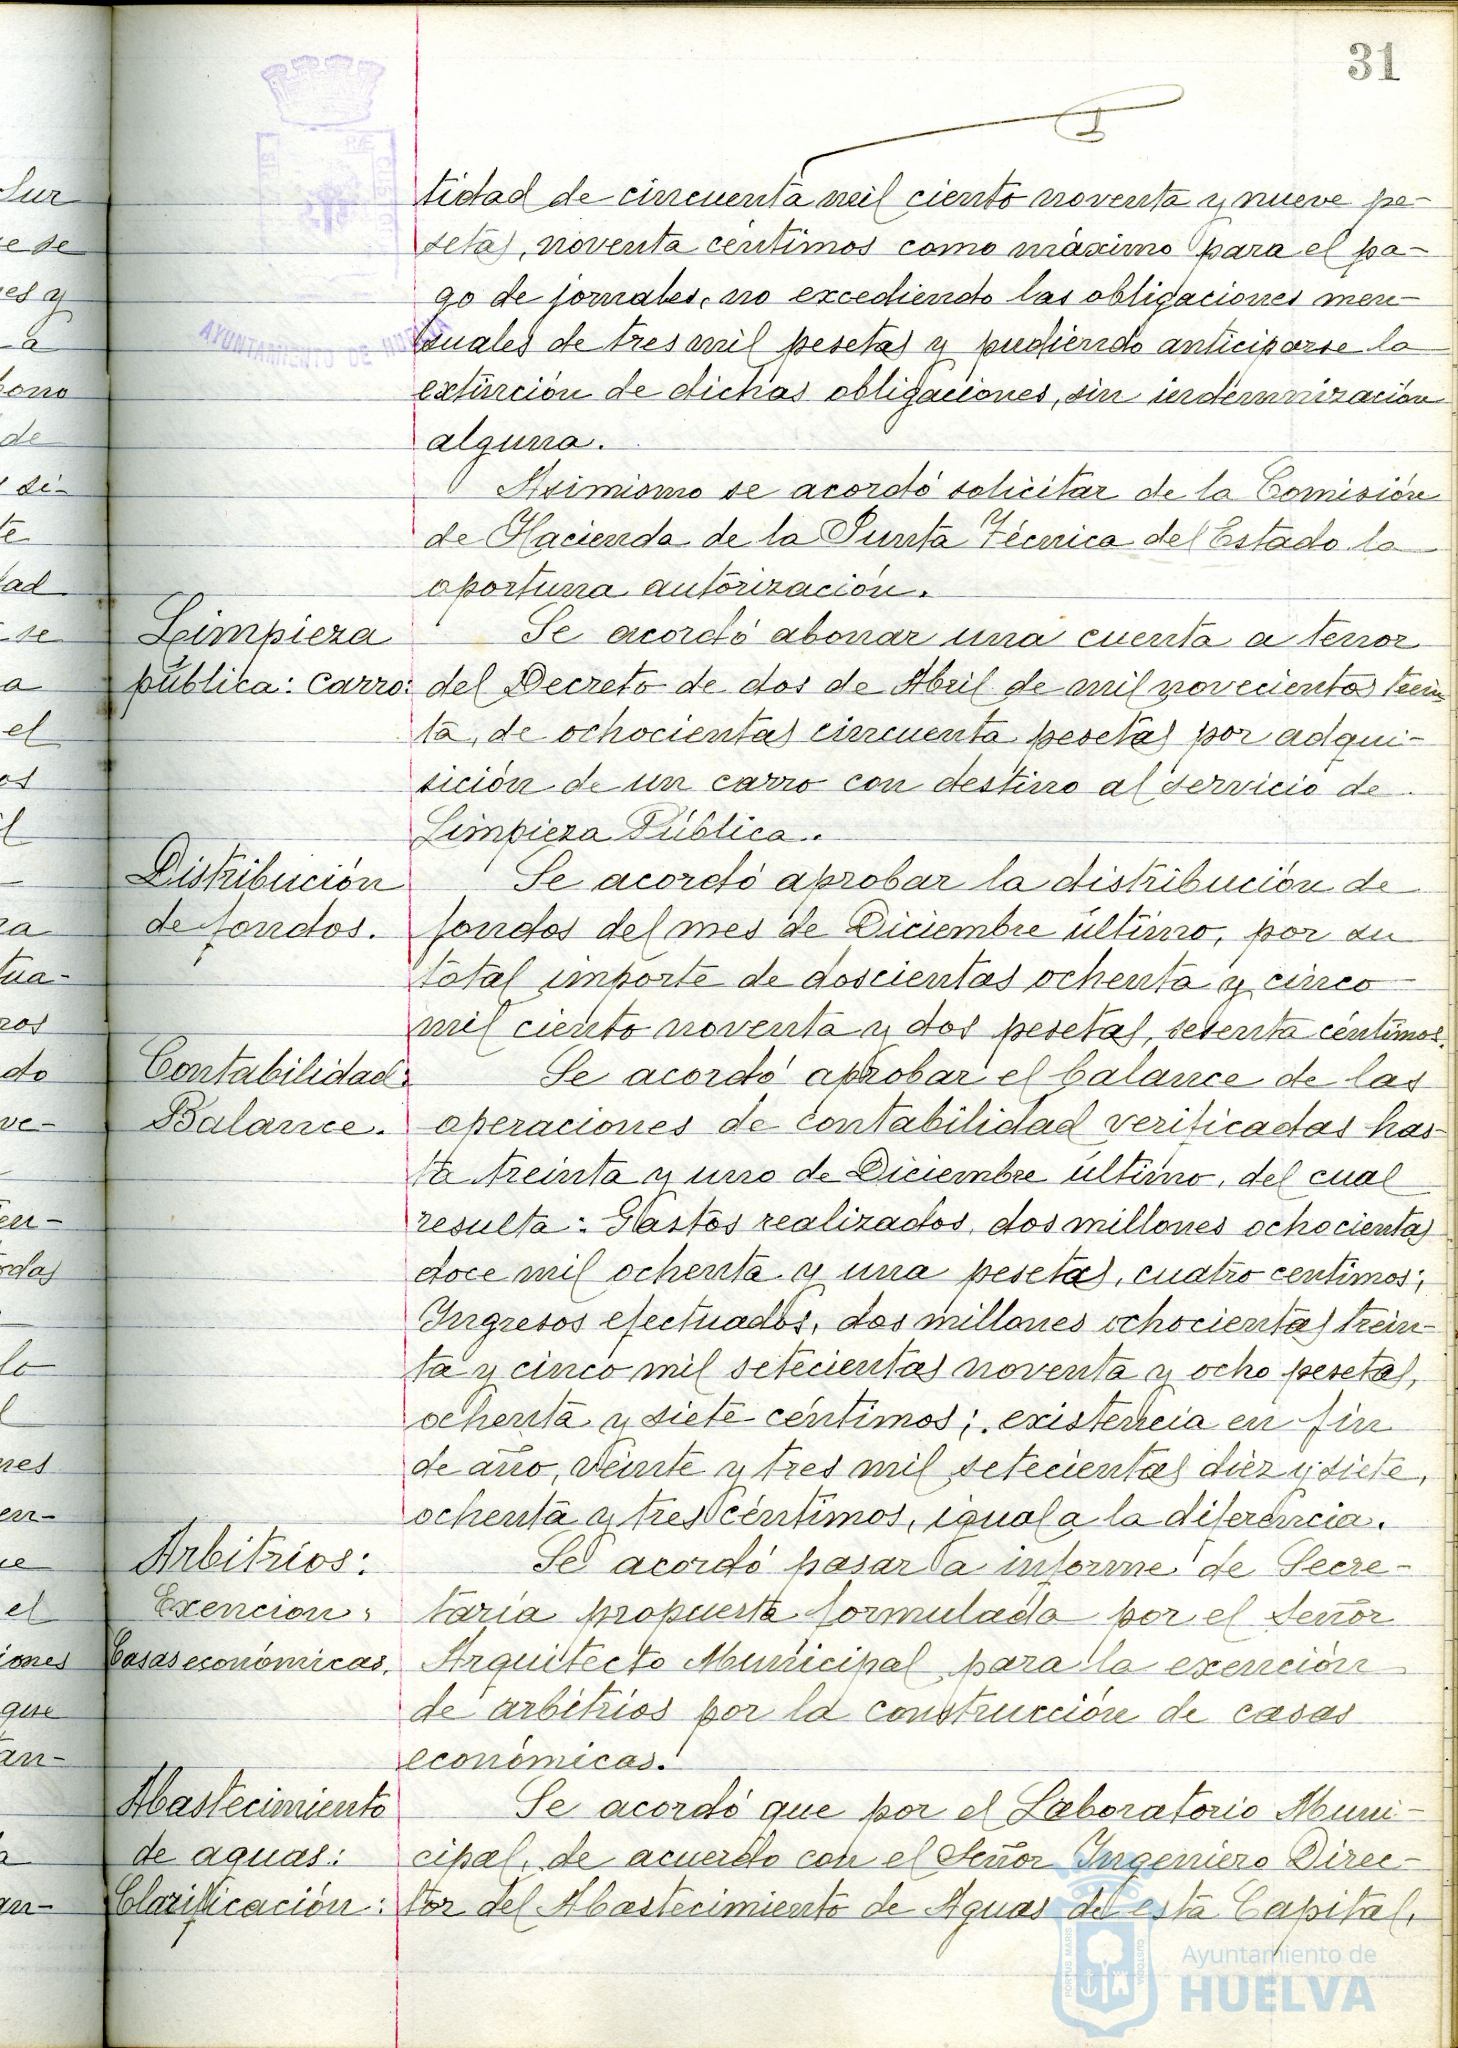 31
tidad de cincuenta mil ciento noventa y nueve pe-
setas, noventa céntimos como máximo para el pa-
go de jornales, no excediendo las obligaciones men-
suales de tres mil pesetas y pudiendo anticiparse la
extinción de dichas obligaciones, sin indemnización
alguna.
Asimismo se acordó solicitar de la Comisión
de Hacienda de la Junta Técnica del Estado la
oportuna autorización.
Limpieza
pública: Carro:
Se acordó abonar una cuenta a tenor
del Decreto de dos de Abril de mil novecientos trein-
ta, de ochocientas cincuenta pesetas por adqui-
sición de un carro con destino al servicio de
Limpieza Pública.
Distribución
de fondos.
Se acordó aprobar la distribución de
fondos del mes de Diciembre último, por su
total importe de doscientas ochenta y cinco
mil ciento noventa y dos pesetas, sesenta céntimos.
Contabilidad:
Balance.
Se acordó aprobar el balance de las
operaciones de contabilidad verificadas has-
ta treinta y uno de Diciembre último, del cual
resulta: Gastos realizados, dos millones ochocientas
doce mil ochenta y una pesetas, cuatro centimos;
Ingresos efectuados, dos millones ochocientas trein-
ta y cinco mil setecientas noventa y ocho pesetas,
ochenta y siete céntimos; existencia en fin
de año, veinte y tres mil setecientas diez y siete,
ochenta y tres céntimos, igual a la diferencia.
Arbitrios:
Exencion:
Casas económicas.
Se acordó pasar a informe de Secre-
taría propuesta formulada por el Señor
Arquitecto Municipal para la exención
de arbitrios por la construcción de casas
económicas.
Abastecimiento
de aguas:
Clarificación:
Se acordó que por el Laboratorio Muni-
cipal, de acuerdo con el Señor Ingeniero Direc-
tor del Abastecimiento de Aguas de esta Capital,
AYUNTAMIENTO DE HUELVA
Ayuntamiento de
HUELVA